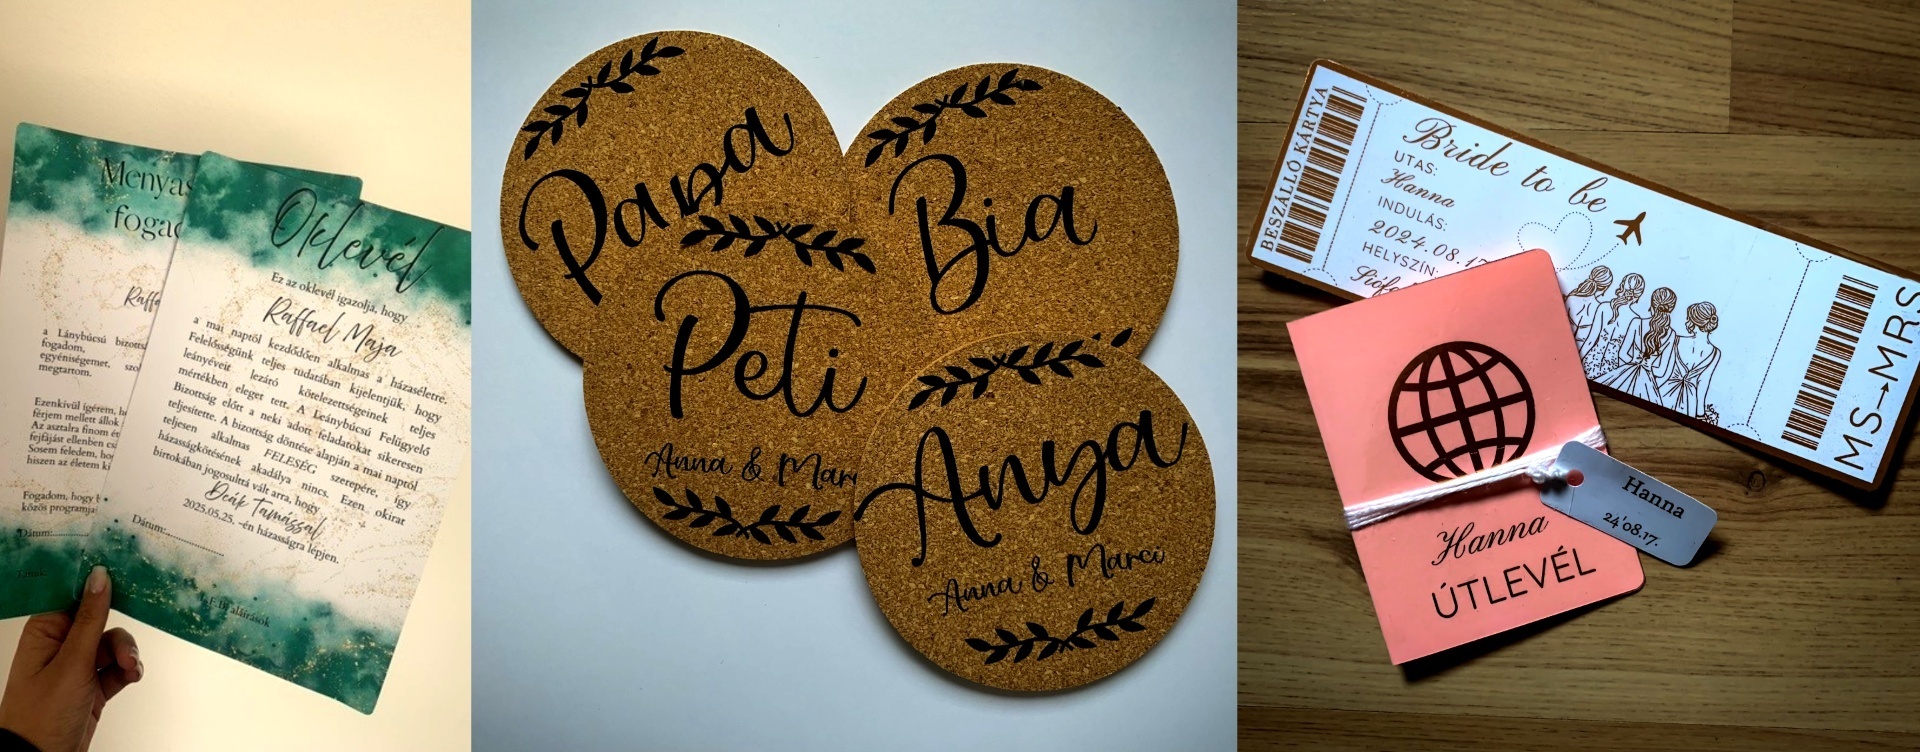 Menyas
fogad
Raffa
a Lánybúcsú bizotts
fogadom,
egyéniségemet, szo
megtartom.
Ezenkívül ígérem, h
férjem mellett állok
Az asztalra finom ét
fejfájást ellenben
Sosem feledem, ho
hiszen az életem ki
Fogadom, hogy
közös programja
Dátum:
Tanúk
Oklevél
Ez az oklevél igazolja, hogy
Raffael Maja
a mai naptól kezdődően alkalmas a házaséletre.
Felelősségünk teljes tudatában kijelentjük, hogy
leányéveit lezáró kötelezettségeinek teljes
mértékben eleget tett. A Leánybúcsú Felügyelő
Bizottság előtt a neki adott feladatokat sikeresen
teljesítette. A bizottság döntése alapján a mai naptól
teljesen alkalmas FELESÉG szerepére, így
házasságkötésének akadálya nincs. Ezen okirat
birtokában jogosulttá vált arra, hogy
Deák Tamással
2025.05.25. -én házasságra lépjen.
Dátum:
L.F.B. aláírások
Papa
Bia
Peti
Anna & Mar
Anya
Anna & Marci
BESZÁLLÓ KÁRTYA
Bride to be
UTAS:
Hanna
INDULÁS:
2024.08.17
HELYSZÍN:
Siófo
MS→MRS
Hanna
ÚTLEVÉL
Hanna
24'08.17.